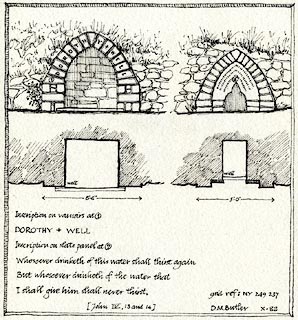 5'-6"
5'-0"
Inscription on voussoirs at ①
DOROTHY + WELL
Inscription on slate panel at ②
Whosoever drinketh of this water shall thirst again
But whosoever drinketh of the water that
I shall give him shall never thirst.
[John IV, 13 and 14]
grid ref: NY 249 237
D.M.Butler X-82